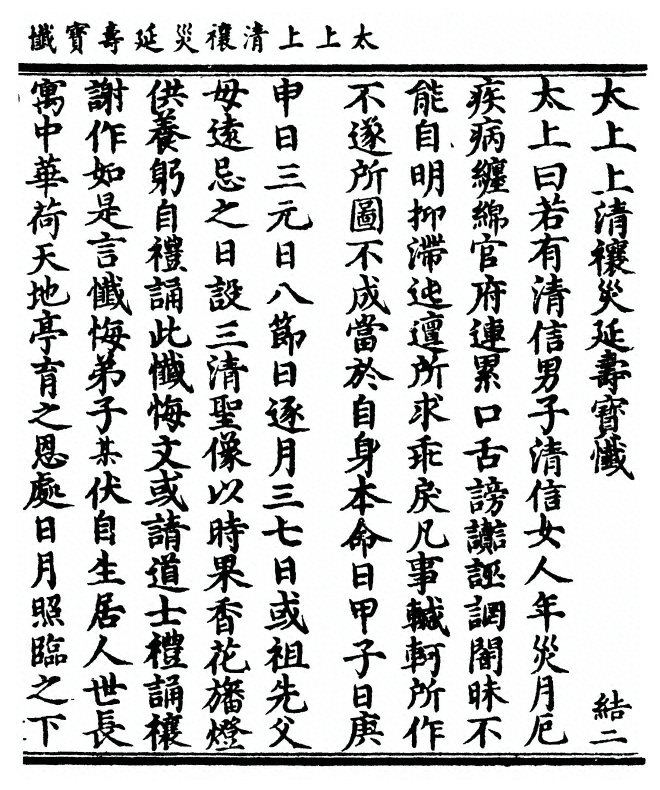 太上上清禳災延壽寶懺
太上上清禳災延壽寶懺 結二
太上曰若有清信男子清信女人年災月厄
疾病纏綿官府連累口舌謗讟誣誷闇昧不
能自明抑滯迍邅所求乖戾凡事轗軻所作
不遂所圖不成當於自身本命日甲子日庚
申日三元日八節日逐月三七日或祖先父
母遠忌之日設三清聖像以時果香花旛燈
供養躬自禮誦此懺悔文或請道士禮誦禳
謝作如是言懺悔弟子某伏自生居人世長
寓中華荷天地亭育之恩處日月照臨之下